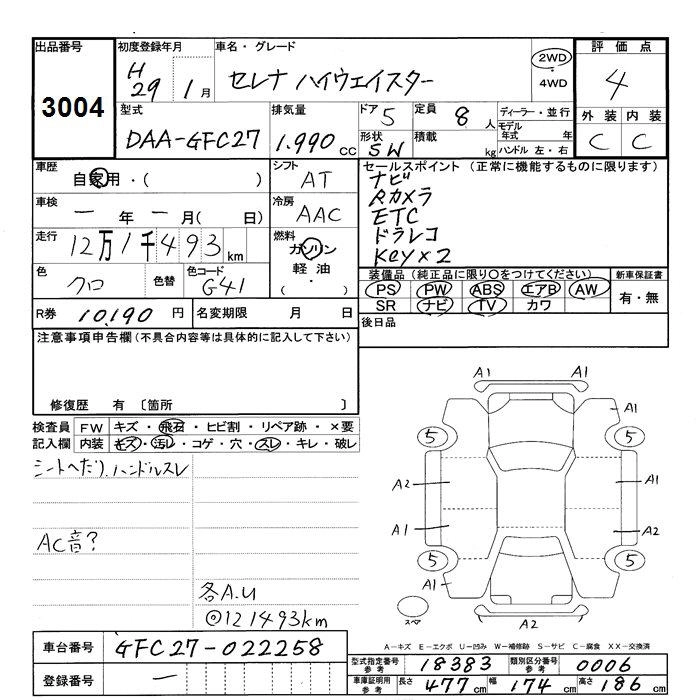 出品番号
3004
初度登録年月
H29 1月
車名・グレード
セレナ ハイウェイスター
2WD
4WD
評価点
4
外装 内装
C C
型式
DAA-GFC27
排気量
1.990 CC
ドア 5
定員 8 人
形状 SW
積載 kg
ディーラー・並行
モデル年式 年
ハンドル 左・右
車歴
自家用・( )
シフト
AT
車検
― 年 ― 月( 日)
冷房
AAC
走行
12万1千493km
燃料
ガソリン
軽油
・( )
色
クロ
色替
色コード
G41
R券 10,190 円
名変期限 月 日
セールスポイント (正常に機能するものに限ります)
ナビ
Rカメラ
ETC
ドラレコ
Key×2
装備品(純正品に限り○をつけてください)
PS PW ABS エアB AW
SR ナビ TV カワ
新車保証書
有・無
後日品
注意事項申告欄(不具合内容等は具体的に記入して下さい)
修復歴 有〔箇所 〕
検査員記入欄
FW キズ・飛石・ヒビ割・リペア跡・×要
内装 キズ・汚レ・コゲ・穴・スレ・キレ・破レ
シートヘたり、ハンドルスレ
AC音?
各A.U
◎121493km
A1 A1
A1
5 5
A2 A1
A1 A2
5 5
A1
スペ
A2
A-キズ E-エクボ U-凹み W-補修跡 S-サビ C-腐食 XX-交換済
車台番号 GFC27-022258
登録番号 ―
型式指定番号 参考 18383
類別区分番号 参考 0006
車庫証明用 参考 長さ 477cm 幅 174cm 高さ 186cm